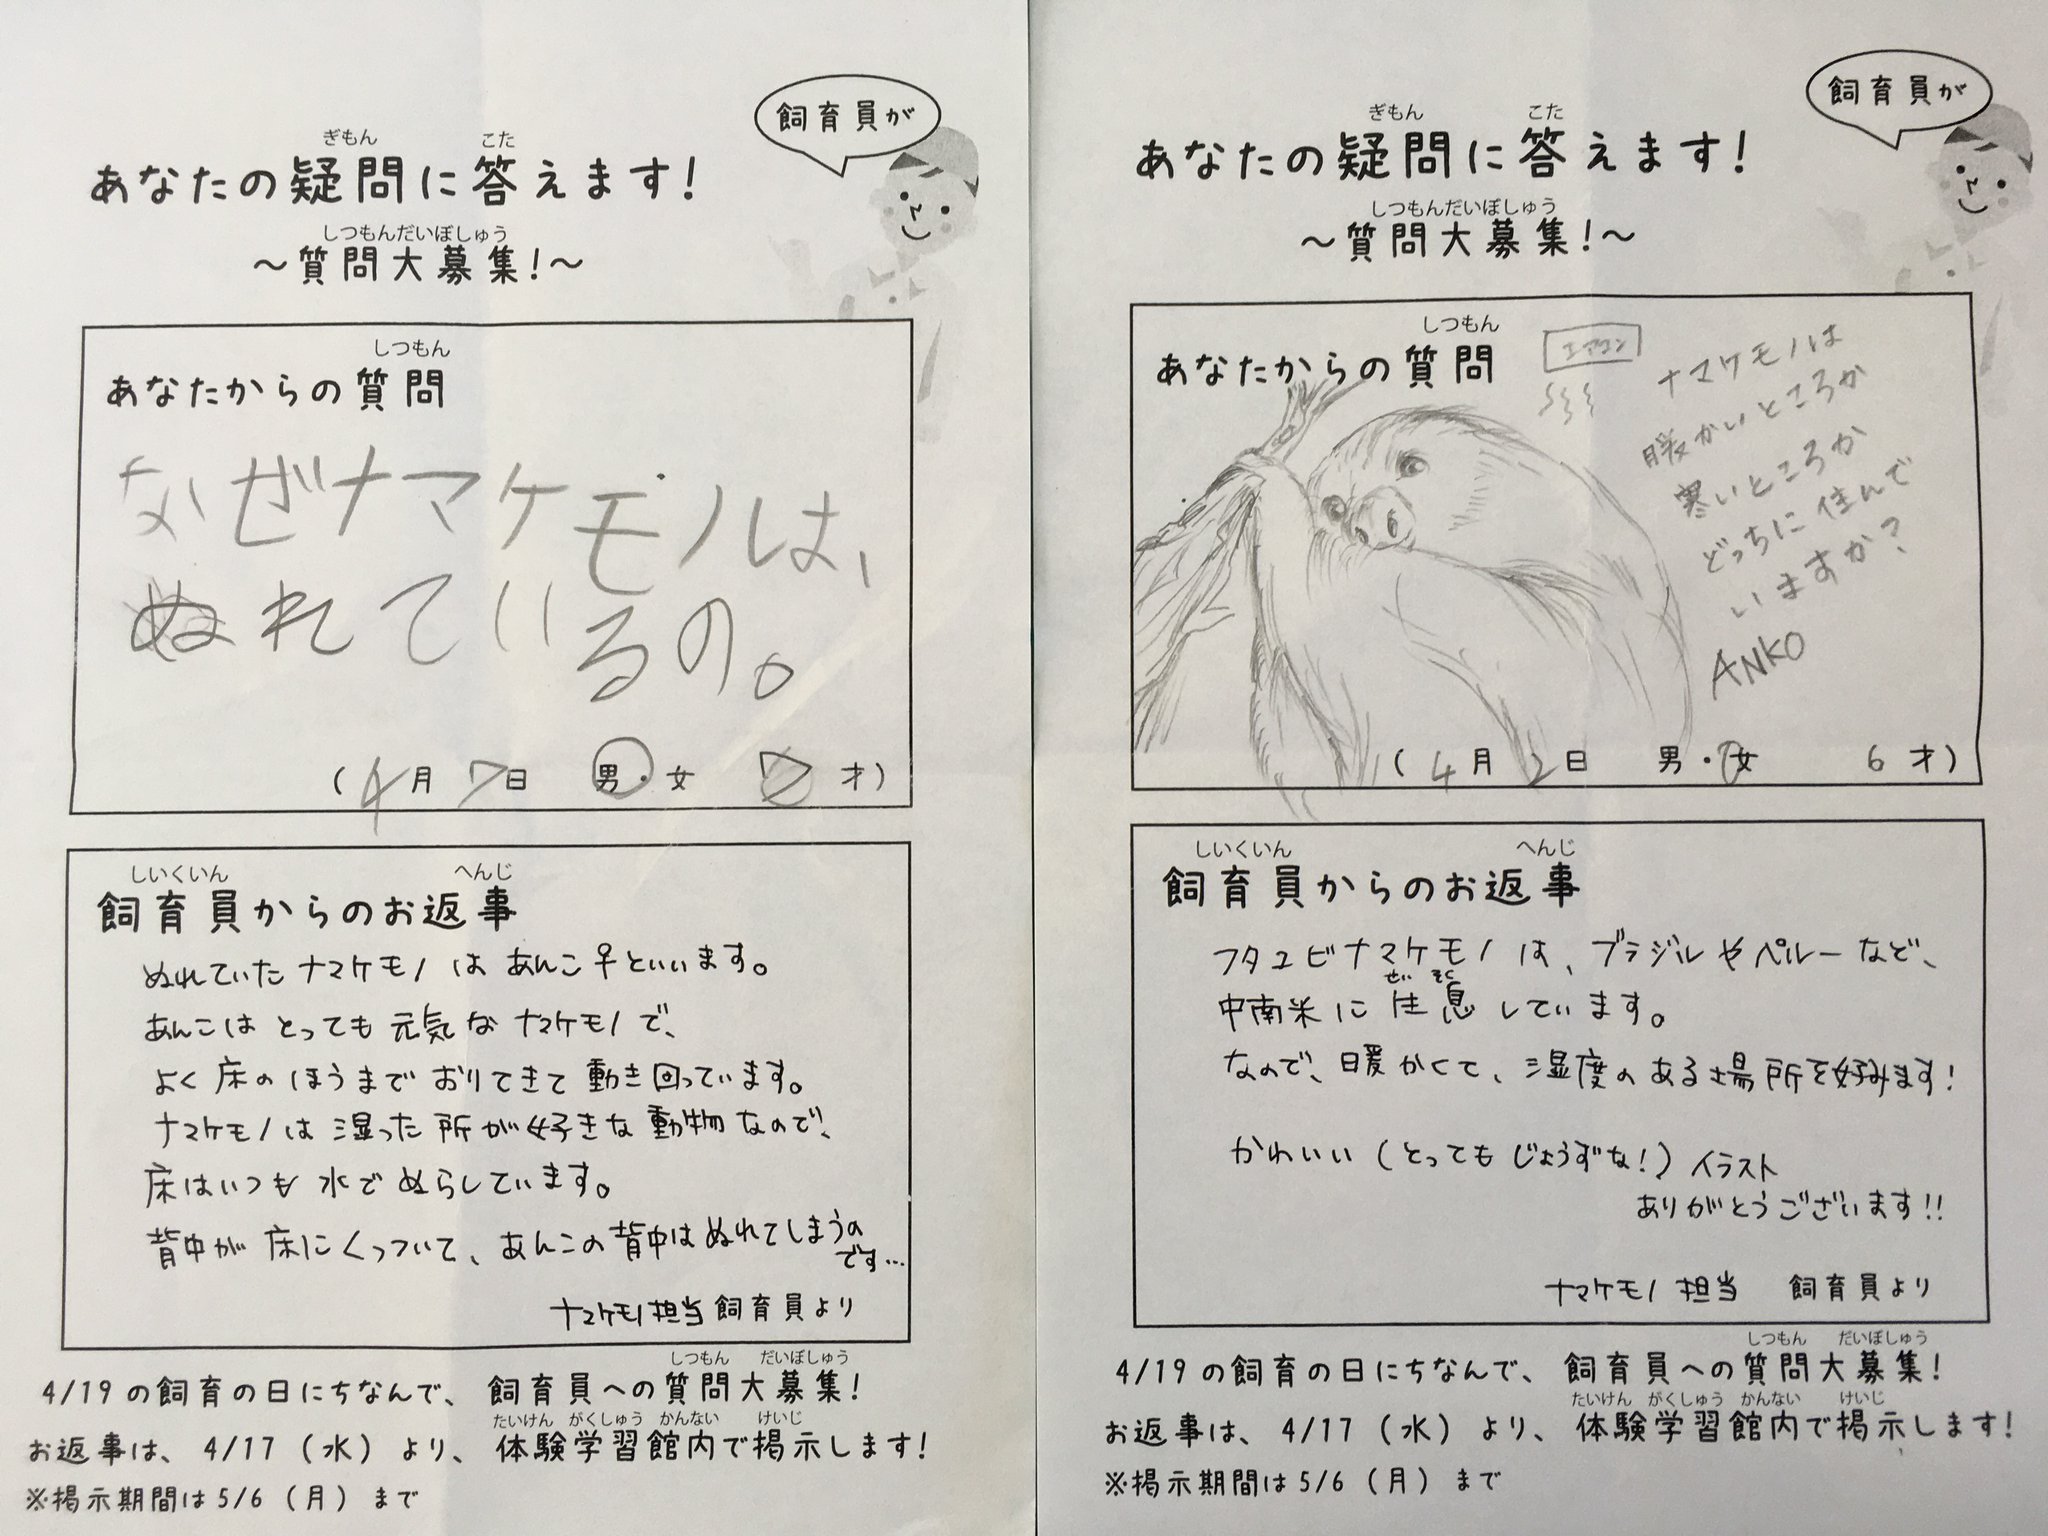 飼育員が
ぎもん こた
あなたの疑問に答えます!
しつもんだいぼしゅう
～質問大募集!～
しつもん
あなたからの質問
なぜナマケモノは、
ぬれているの。
(4月7日 男・女 7才)
しいくいん へんじ
飼育員からのお返事
ぬれていたナマケモノはあんこ♀といいます。
あんこはとっても元気なナマケモノで、
よく床のほうまでおりてきて動き回っています。
ナマケモノは湿った所が好きな動物なので、
床はいつも水でぬらしています。
背中が床にくっついて、あんこの背中はぬれてしまうの
です…
ナマケモノ担当飼育員より
しつもん だいぼしゅう
4/19の飼育の日にちなんで、飼育員への質問大募集!
たいけん がくしゅう かんない けいじ
お返事は、4/17(水)より、体験学習館内で掲示します!
※掲示期間は5/6(月)まで
飼育員が
ぎもん こた
あなたの疑問に答えます!
しつもんだいぼしゅう
～質問大募集!～
しつもん
あなたからの質問
エアコン
ナマケモノは
暖かいところか
寒いところか
どっちに住んで
いますか?
ANKO
(4月2日 男・女 6才)
しいくいん へんじ
飼育員からのお返事
フタユビナマケモノは、ブラジルやペルーなど、
せい そく
中南米に生息しています。
なので、暖かくて、湿度のある場所を好みます!
かわいい(とってもじょうずな!)イラスト
ありがとうございます!!
ナマケモノ担当 飼育員より
しつもん だいぼしゅう
4/19の飼育の日にちなんで、飼育員への質問大募集!
たいけん がくしゅう かんない けいじ
お返事は、4/17(水)より、体験学習館内で掲示します!
※掲示期間は5/6(月)まで